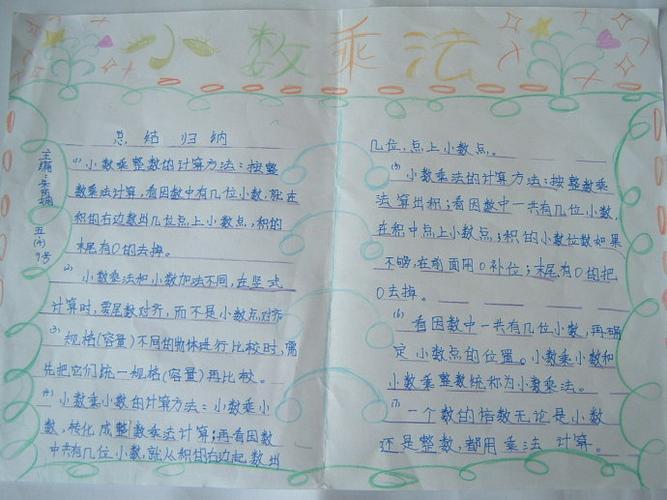 小数乘法
总结归纳
主编:
五(4)
9号
(1)小数乘整数的计算方法:按整
数乘法计算,看因数中有几位小数,就在
积的右边数出几位点上小数点,积的
末尾有0的去掉。
(2)小数乘法和小数加法不同,在竖式
计算时,要尾数对齐,而不是小数点对齐
(3)规格(容量)不同的物体进行比较时,需
先把它们统一规格(容量)再比较。
(4)小数乘小数的计算方法:小数乘小
数,转化成整数乘法计算;再看因数
中共有几位小数,就从积的右边起数出
几位,点上小数点。
(5)小数乘法的计算方法:按整数乘
法算出积;看因数中一共有几位小数,
在积中点上小数点;积的小数位数如果
不够,在前面用0补位;末尾有0的把
0去掉。
(6)看因数中一共有几位小数,再确
定小数点的位置。小数乘小数和
小数乘整数统称为小数乘法。
(7)一个数的倍数无论是小数
还是整数,都用乘法计算。